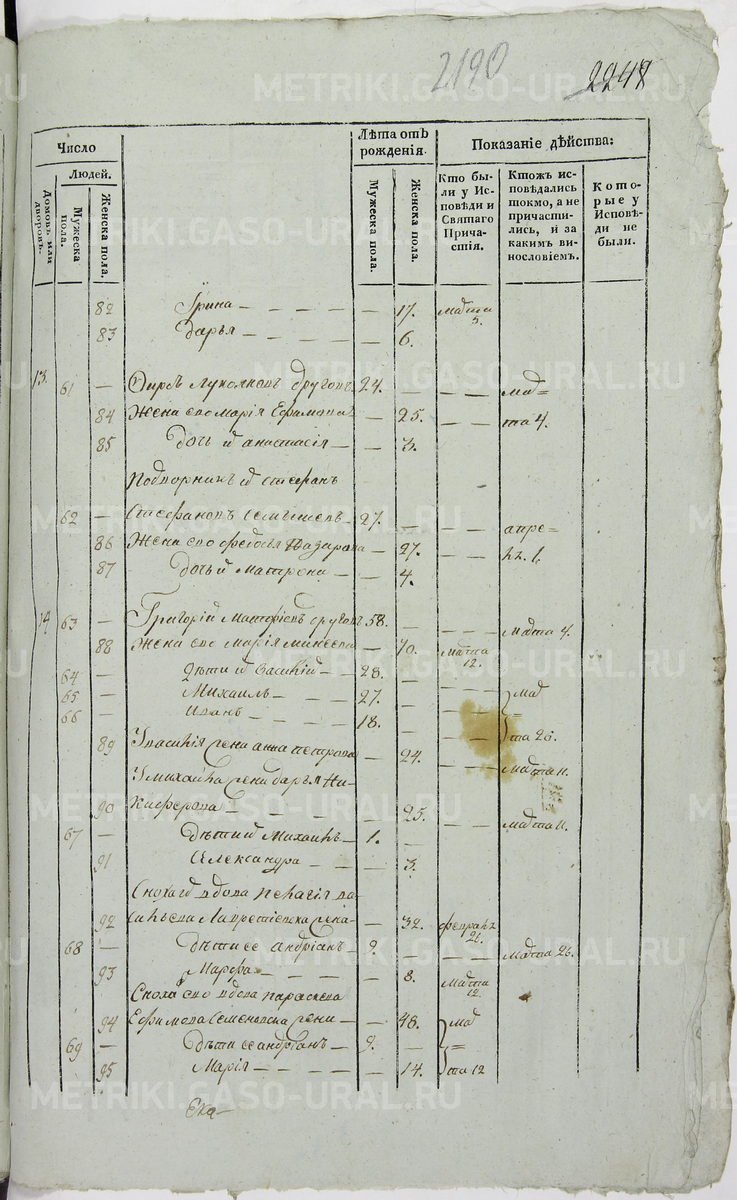 2190 2248
Число
Лѣта отъ рожденія.
Показаніе дѣйства:
Людей.
Домовъ или дворовъ.
Мужеска пола.
Женска пола.
Мужеска пола.
Женска пола.
Кто были у Исповѣди и Святаго Причастія.
Ктожъ исповѣдались токмо, а не причастились, и за какимъ винословіемъ.
Которые у Исповѣди не были.
82 Ірина — — — — — 17. марта 5.
83 Дарья — — — — — 6.
13. 61 — 24. — — — мар=
84 Жена его Марія Ефимова — 25. — — та 4.
85 Дочь и Анастасія — — 3.
Подворникъ Стефанъ
62 — Стефановъ 27. — — — апре=
86 Жена его Федосья Назарова — 27. — — ля 1.
87 Дочь и Матрена — — 4.
14 63 — Григорій 58. — — — марта 4.
88 Жена его Марія Минеева — 70. марта 12.
64 — Дѣти и Василій — — 28. —
65 — Михаилъ — — — 27. — — — мар
66 — Иванъ — — — 18. — — — =
та 26.
89 Василія жена Анна Петрова — 24. — — марта 11.
Михаила жена Ни-
90 киферова — — — — — 25. — — марта 11.
67 — Дѣти и Михаилъ — 1. —
91 Александра — — — 3.
Сноха вдова Пелагія Ва-
92 сильева жена — — 32. февраля 26.
68 — Дѣти ее Андріанъ — 9. — — — марта 26.
93 Марфа — — — — 8. марта 12.
Сноха его вдова Параскева
94 Ефимова Семеновска жена — — 48. мар
69 — Дѣти ее Андріанъ — 9. — =
95 Марія — — — — — 14. та 12
Ека
METRIKI.GASO-URAL.RU